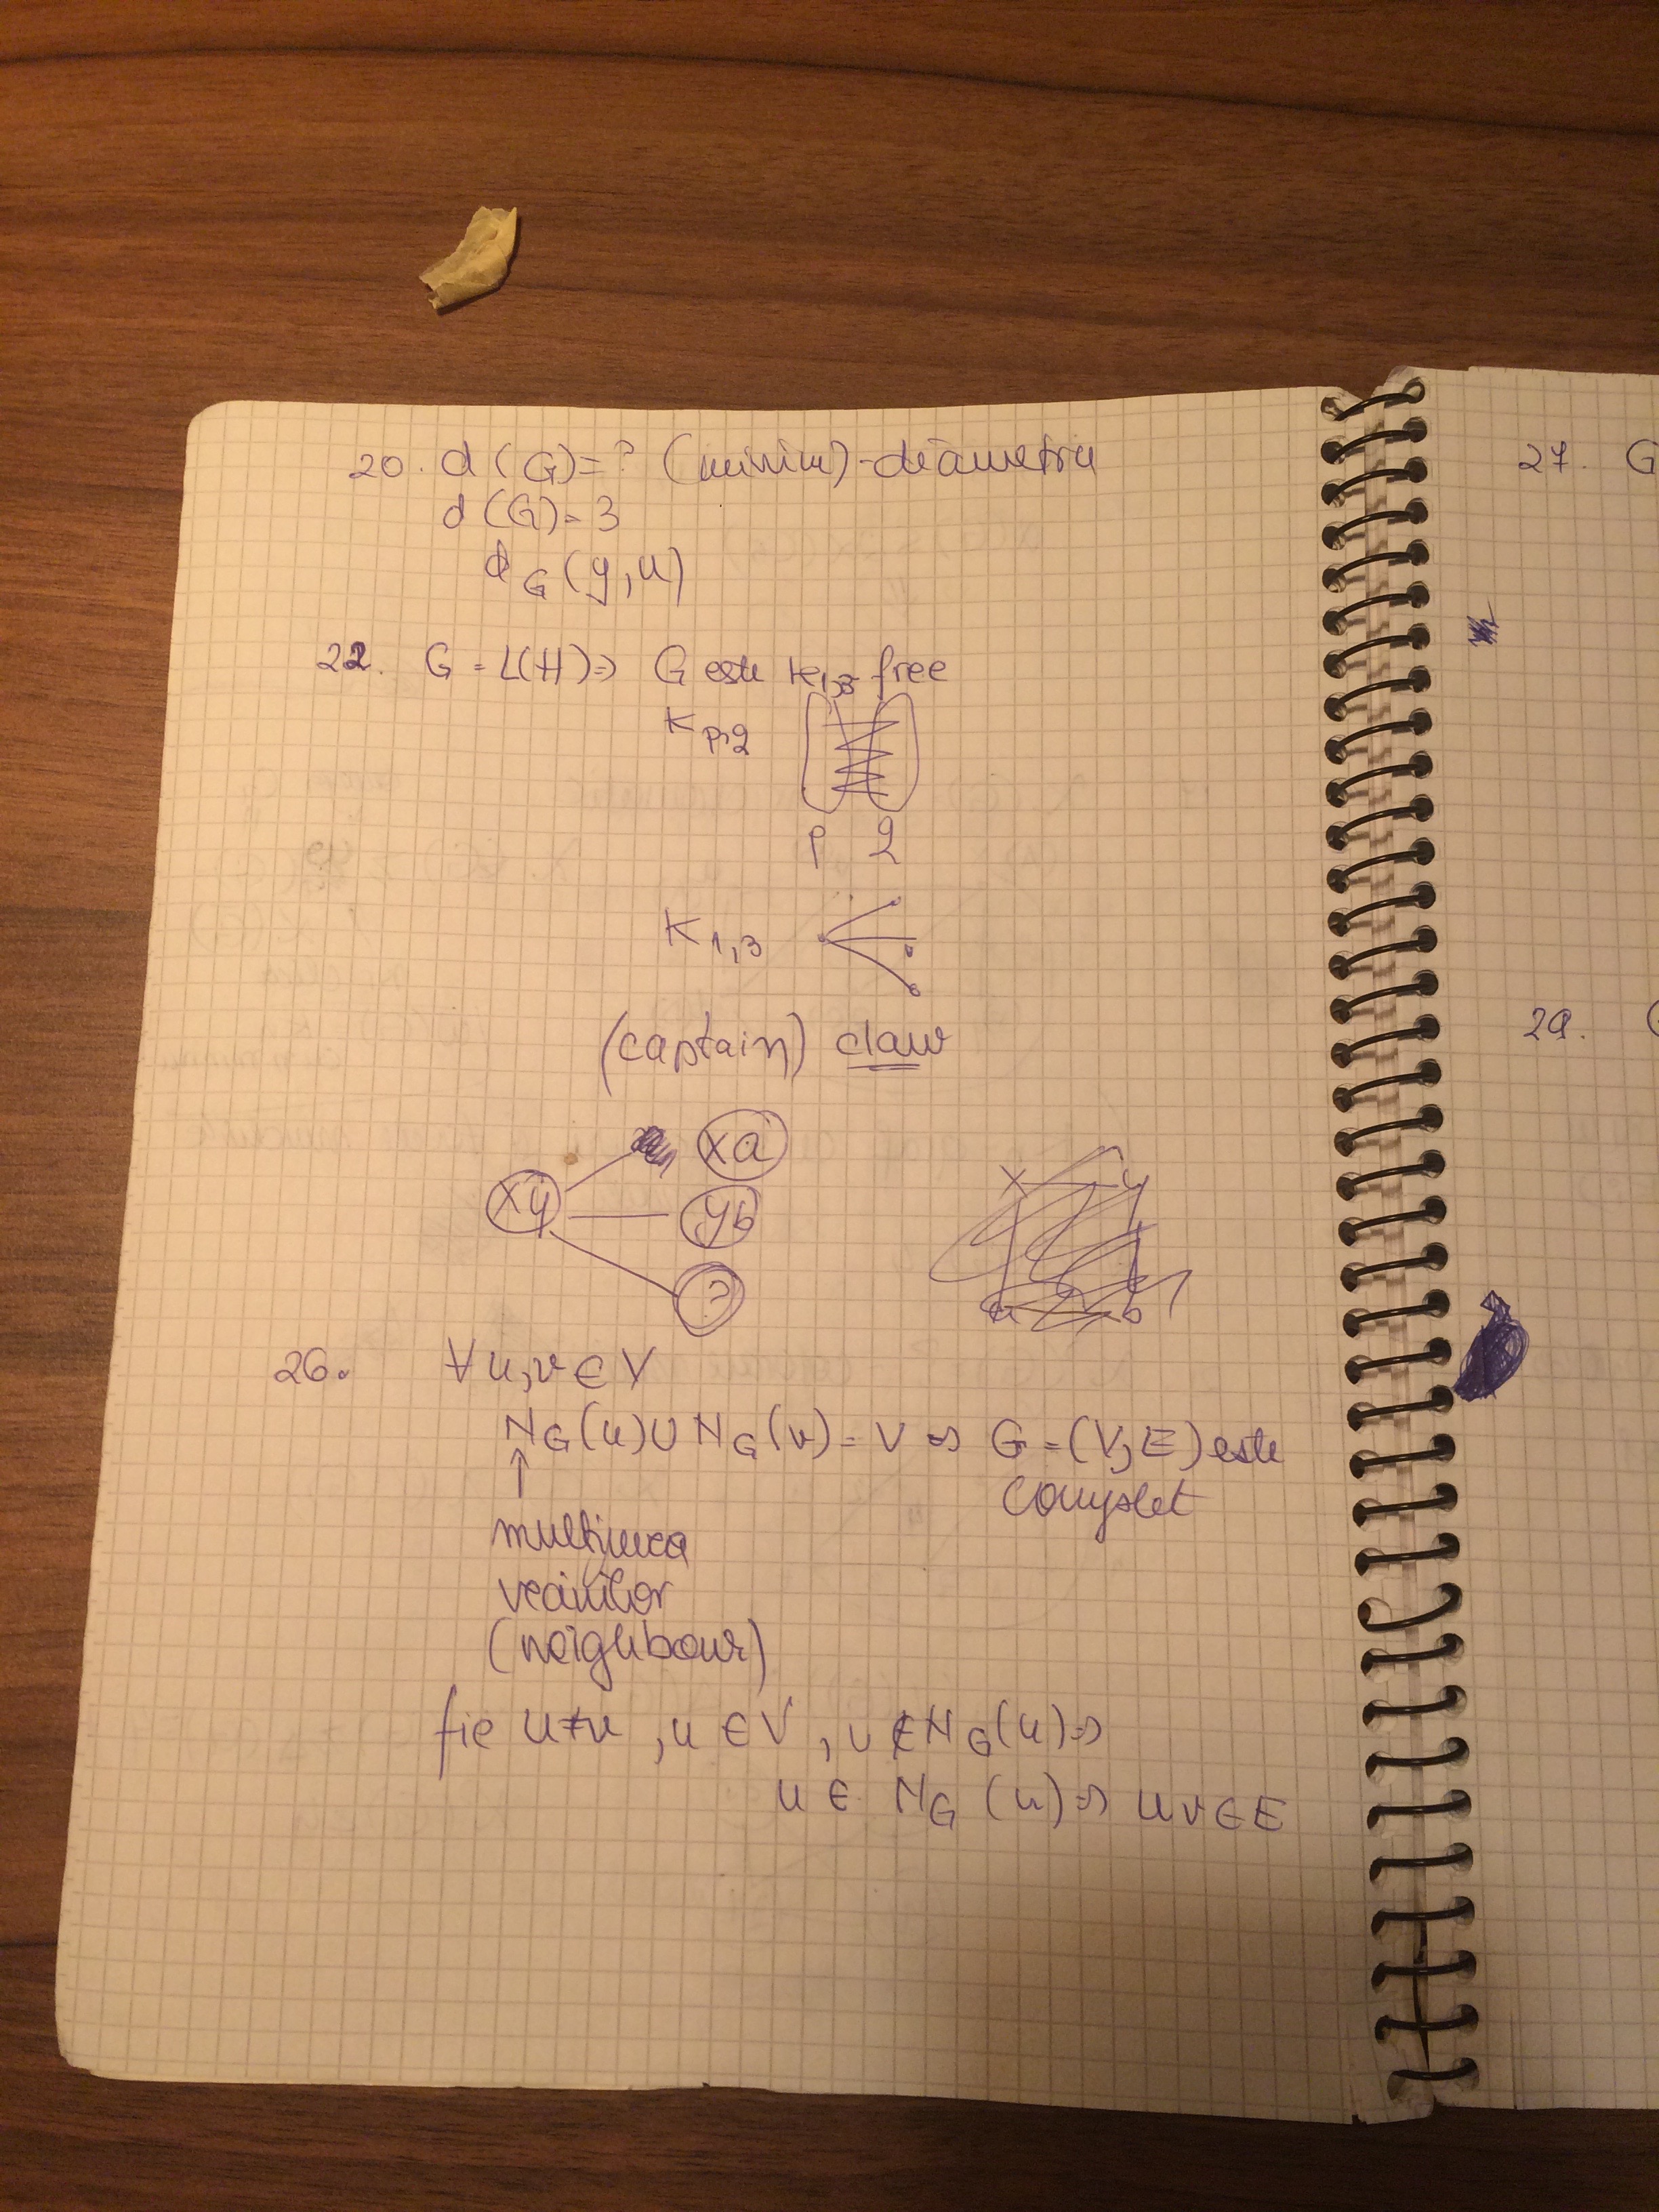 20. d(G)=? (minim)-diametru
d(G)=3
d_G(y,u)
22. G=L(H)=> G este K_{1,3}-free
K_{p,q}
p q
K_{1,3}
(captain) claw
xy xa
yb
?
x y
a b
26. ∀u,v∈V
N_G(u)∪N_G(v)=V => G=(V,E) este
↑ complet
mulțimea
vecinilor
(neighbour)
fie u≠v, u∈V, u∉N_G(u)=>
u∈N_G(v)=> uv∈E
27. G
29.